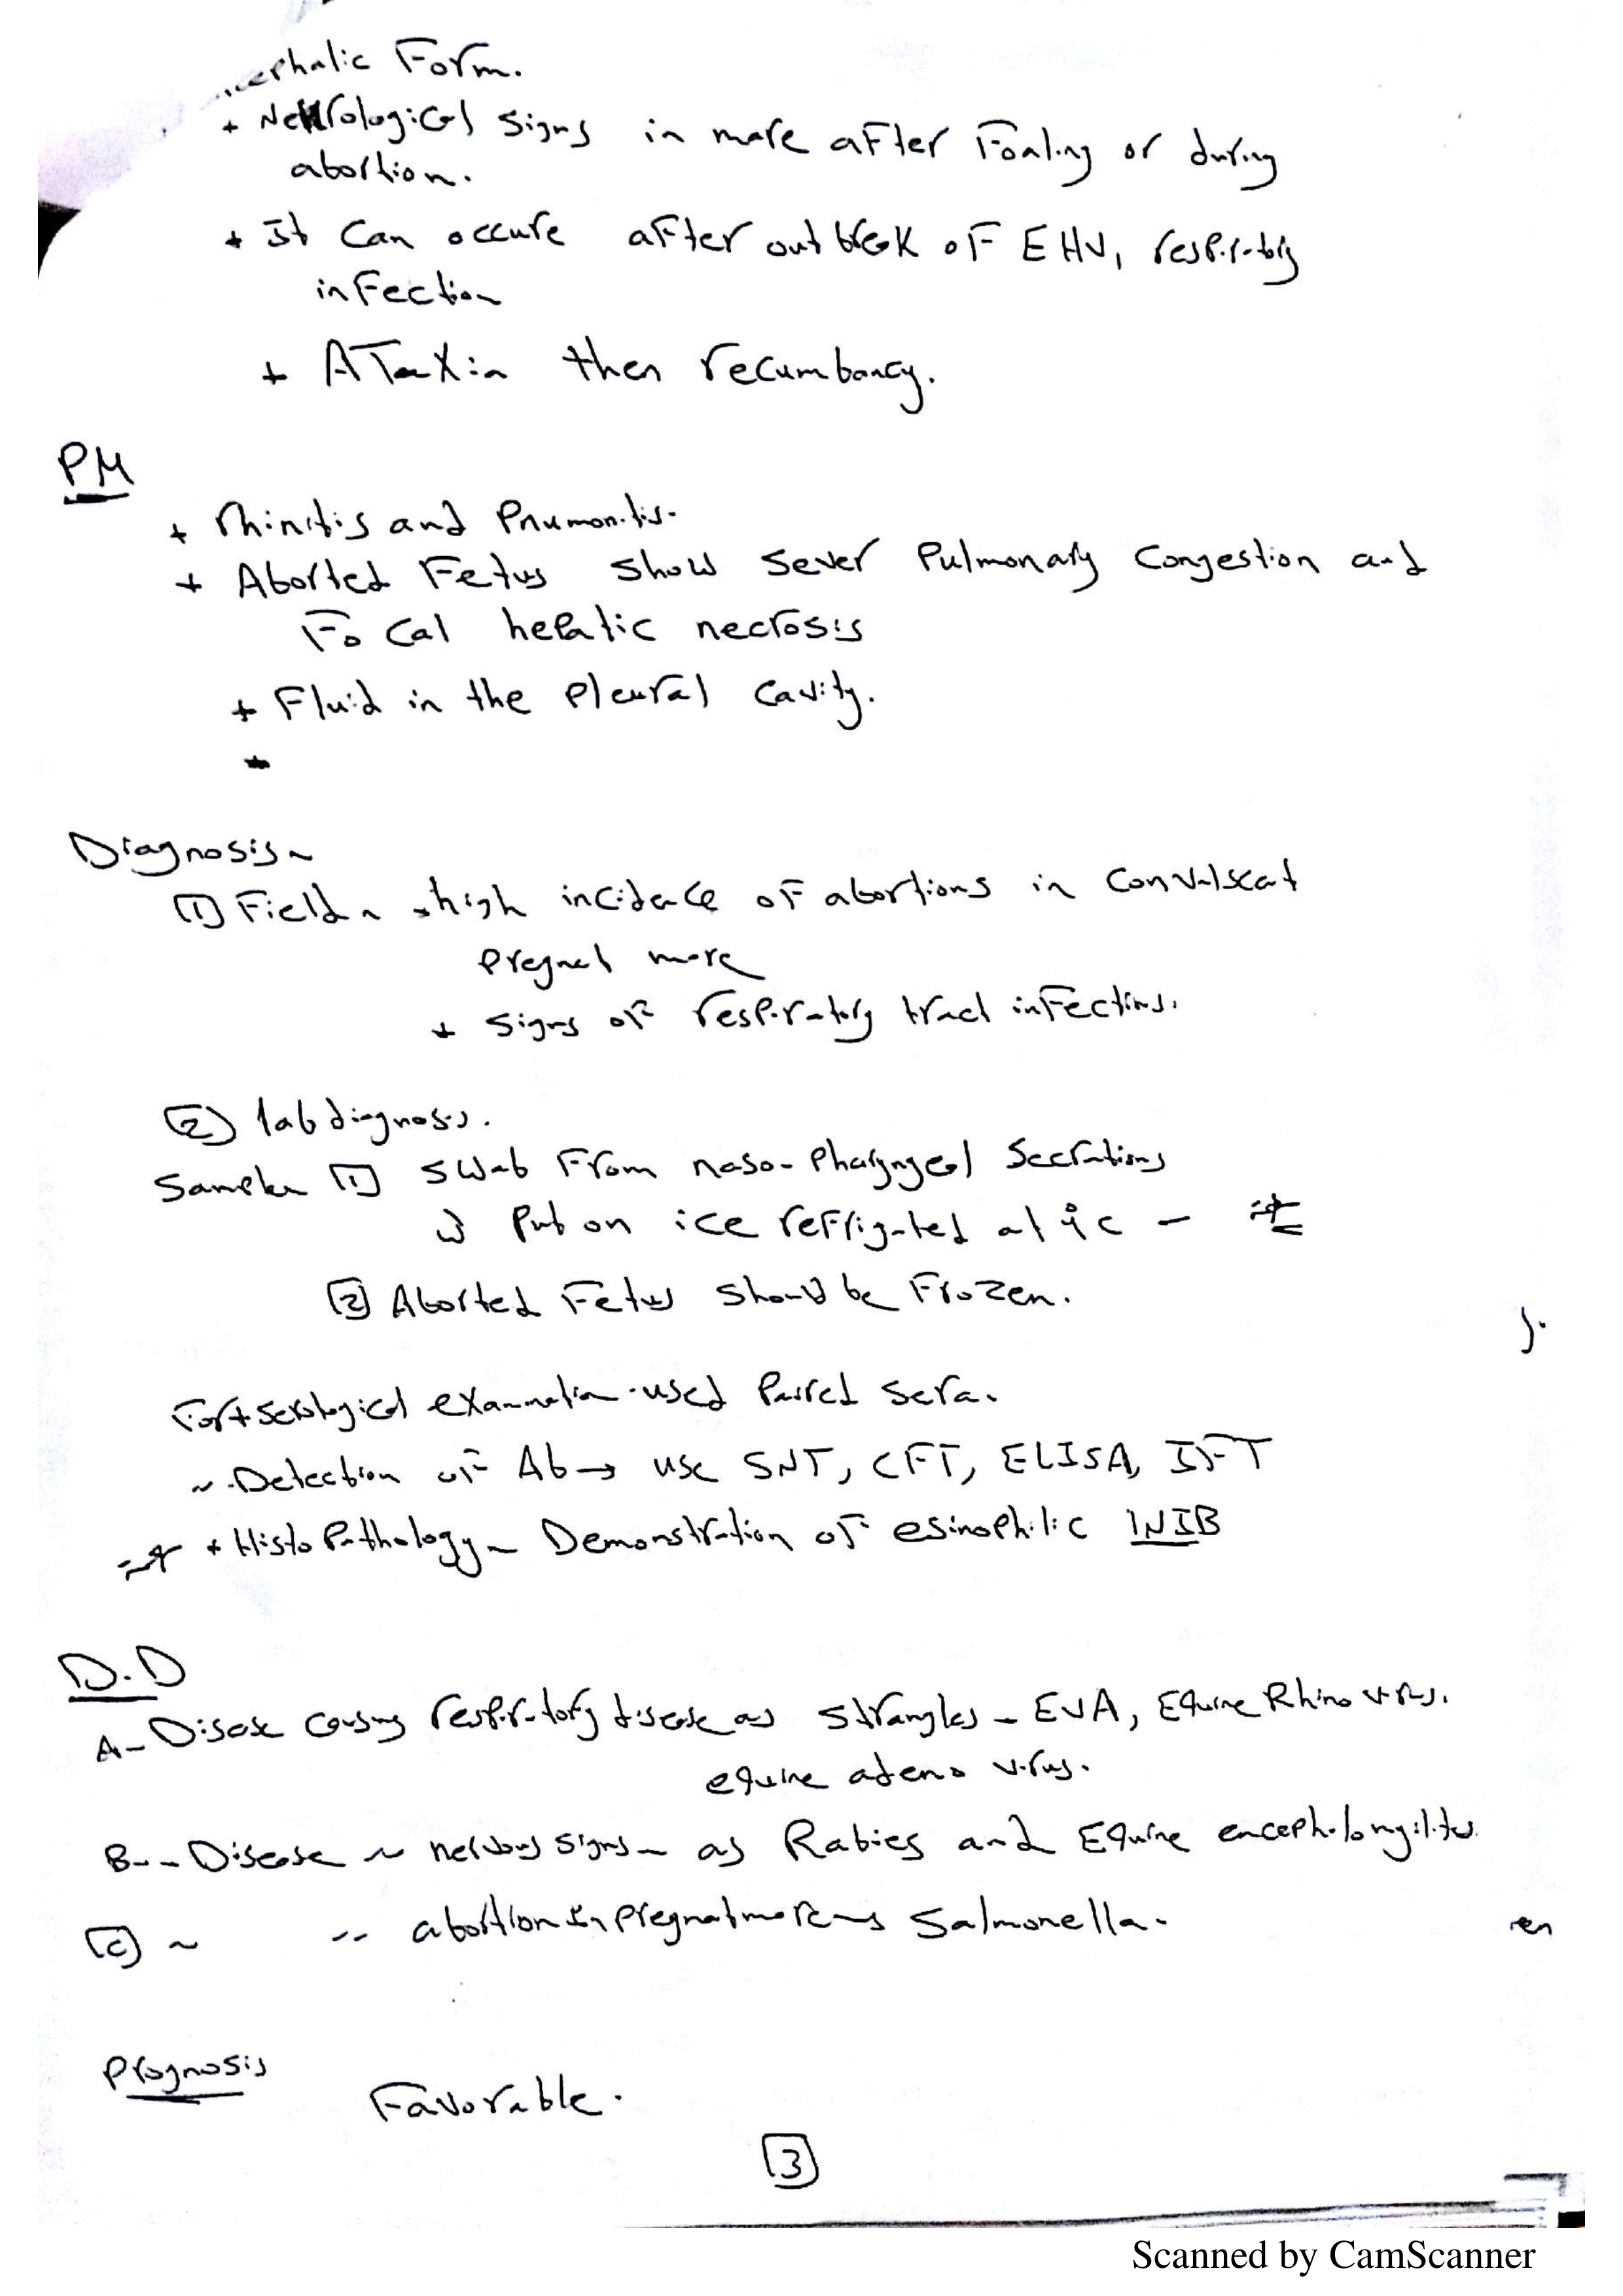 cephalic Form.
+ Neurological signs in mare after Foaling or during
abortion.
+ It Can occure after out break of EHV1 respiratory
infection
+ ATaxia then recumbancy.
PM
+ rhinitis and Pnumonitis.
+ Aborted Fetus show sever Pulmonary Congestion and
Focal hepatic necrosis
+ Fluid in the Pleural Cavity.
Diagnosis ~
(1) Field ~ high incidence of abortions in Convalscat
Pregnat mare
+ signs of respiratory tract infections.
(2) lab diagnosis.
Sample (1) swab From naso-Pharyngeal Secrations
Put on ice refrigated at 4c -
(2) Aborted Fetus should be Frozen.
For + serological examination used Paired sera.
~ Detection of Ab → use SNT, CFT, ELISA, IFT
+ Histo Pathology - Demonstration of esinophilic INIB
D.D
A- Disease Causing respiratory disease as strangles - EVA, Equine Rhino virus.
equine adeno virus.
B-- Disease ~ nervous signs - as Rabies and Equine
(C) ~ -- abortion in Pregnat mare as Salmonella.
en
Prognosis
Favorable.
3
Scanned by CamScanner